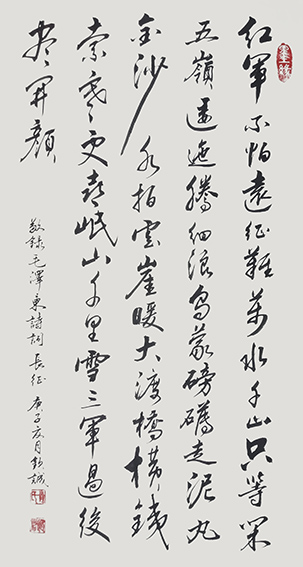 墨緣
紅軍不怕遠征難萬水千山只等閑
五嶺逶迤騰細浪烏蒙磅礴走泥丸
金沙水拍雲崖暖大渡橋橫鐵
索寒更喜岷山千里雪三軍過後
盡開顏
敬錄毛澤東詩詞長征庚子月